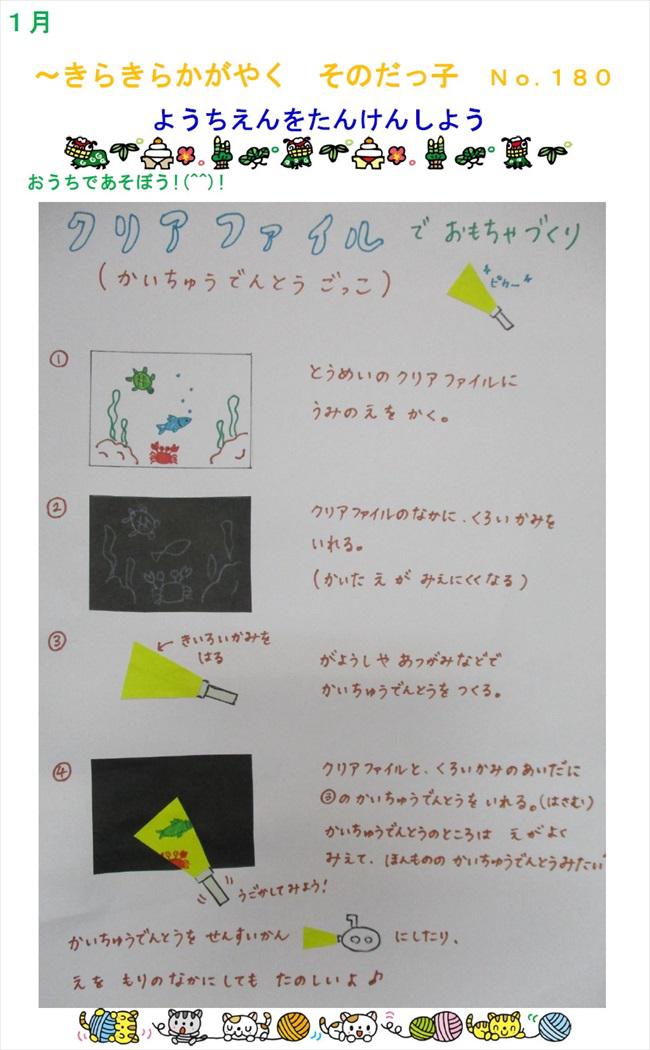 １月
～きらきらかがやく　そのだっ子　Ｎｏ.１８０
ようちえんをたんけんしよう
おうちであそぼう!(^^)!
クリアファイル で おもちゃづくり
(かいちゅうでんとう ごっこ)
ピカー
①
とうめいの クリアファイルに
うみの えを かく。
②
クリアファイルのなかに、くろいかみを
いれる。
(かいた え が みえにくくなる)
③
きいろいかみを
はる
がようしや あつがみなどで
かいちゅうでんとうを つくる。
④
クリアファイルと、くろいかみのあいだに
③の かいちゅうでんとうを いれる。(はさむ)
かいちゅうでんとうのところは えがよく
みえて、ほんものの かいちゅうでんとうみたい
うごかしてみよう!
かいちゅうでんとうを せんすいかん にしたり、
えを もりのなかにしても たのしいよ♪